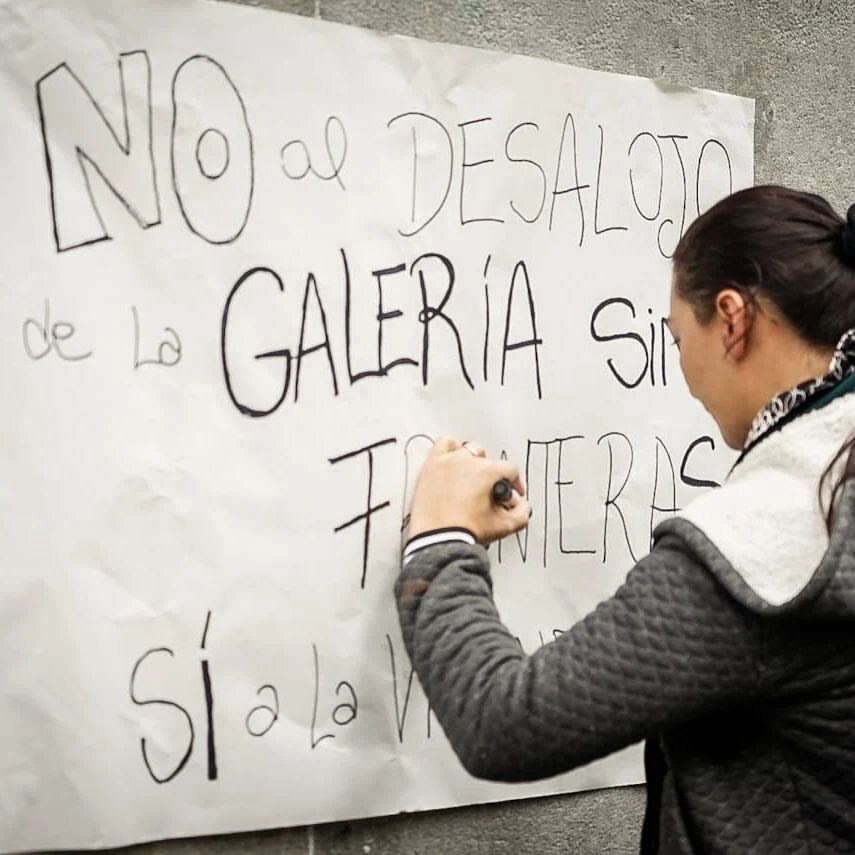 NO al DESALOJO
de La GALERÍA Sin
FRONTERAS
SÍ a La